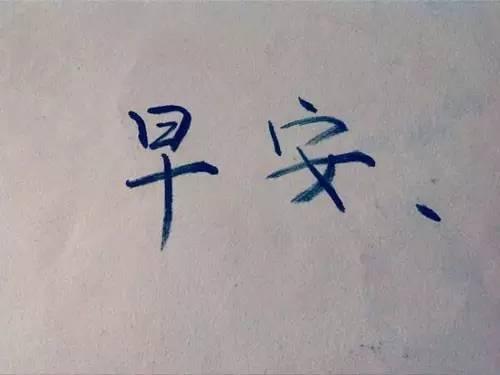 早安、